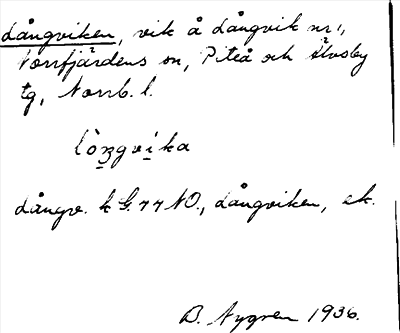 Långviken, vik å Långvik nr 1,
Norrfjärdens sn, Piteå och Älvsby
tg, Norrb. l.
lòŋgvika
Långv. k G. 77 NO., Långviken, ek.
B. Nygren 1936.